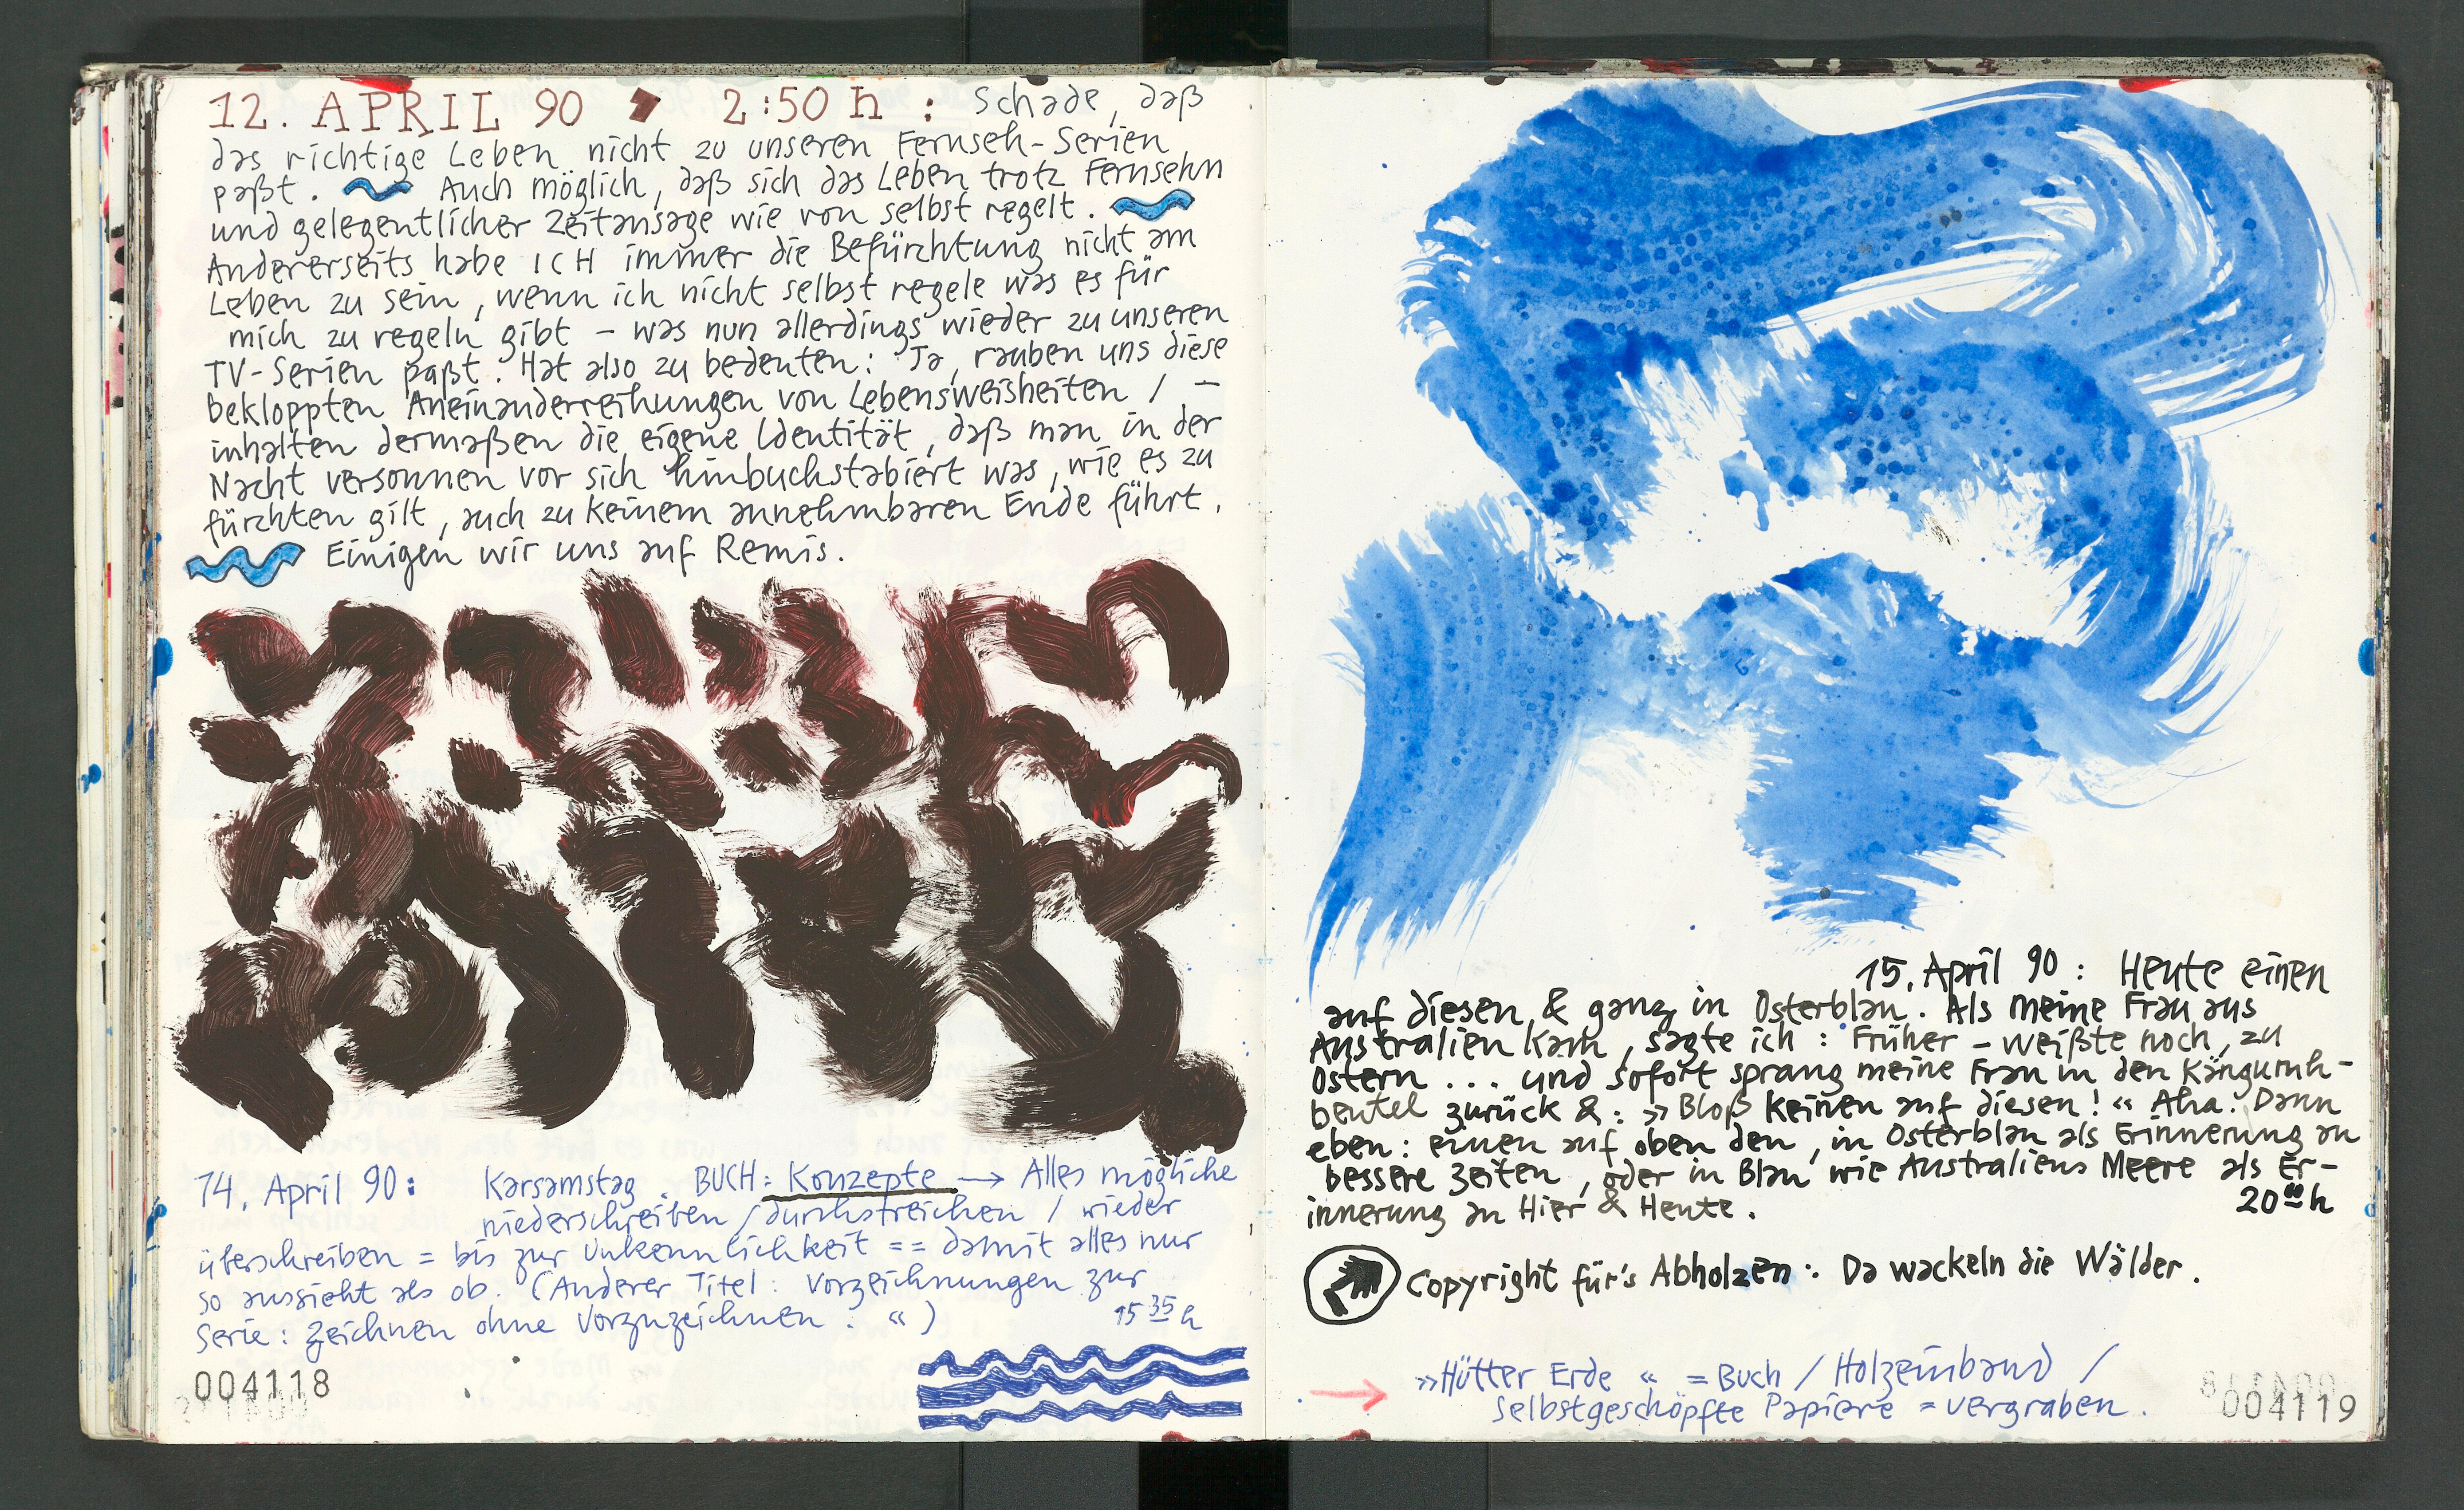 12. APRIL 90 2:50 h : Schade, daß
das richtige Leben nicht zu unseren Fernseh-Serien
paßt. Auch möglich, daß sich das Leben trotz Fernsehn
und gelegentlicher Zeitansage wie von selbst regelt.
Andererseits habe ICH immer die Befürchtung nicht am
Leben zu sein, wenn ich nicht selbst regele was es für
mich zu regeln gibt – was nun allerdings wieder zu unseren
TV-Serien paßt. Hat also zu bedeuten: Ja, rauben uns diese
bekloppten Aneinanderreihungen von Lebensweisheiten / –
inhalten dermaßen die eigene Identität, daß man in der
Nacht versonnen vor sich hinbuchstabiert was, wie es zu
fürchten gilt, auch zu keinem annehmbaren Ende führt.
Einigen wir uns auf Remis.
14. April 90: Karsamstag. BUCH: Konzepte → Alles mögliche
niederschreiben / durchstreichen / wieder
überschreiben = bis zur Unkenntlichkeit == damit alles nur
so aussieht als ob. (Anderer Titel: Vorzeichnungen zur
Serie: Zeichnen ohne Vorzuzeichnen. «)
15 35 h
004118
15. April 90: Heute einen
auf diesen & ganz in Osterblau. Als meine Frau aus
Australien kam, sagte ich: Früher – weißte noch, zu
Ostern ... und sofort sprang meine Frau in den Känguruh-
beutel zurück &: »Bloß keinen auf diesen!« Aha. Dann
eben: einen auf oben den, in Osterblau als Erinnerung an
bessere Zeiten, oder in Blau wie Australiens Meere als Er-
innerung an Hier & Heute.
20 00 h
Copyright für's Abholzen: Da wackeln die Wälder.
»Hütter Erde« = Buch / Holzeinband /
Selbstgeschöpfte Papiere = vergraben.
004119